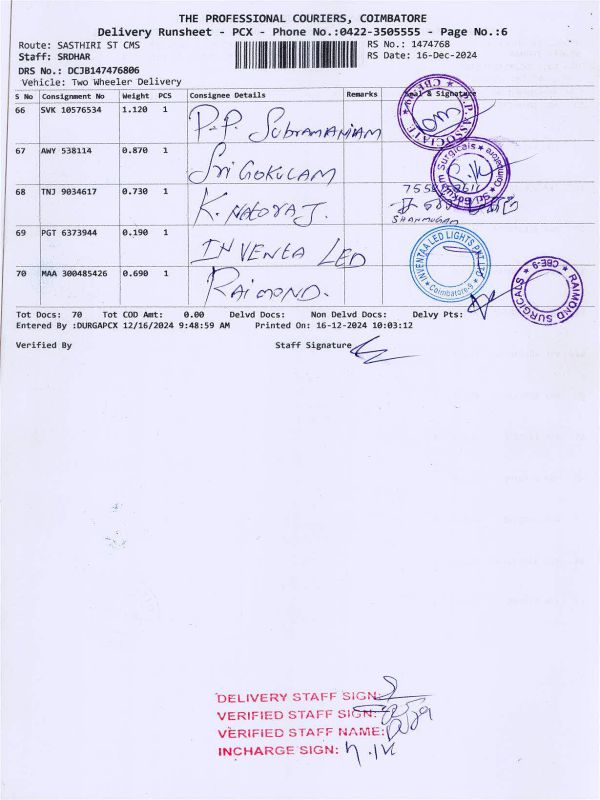 THE PROFESSIONAL COURIERS, COIMBATORE
Delivery Runsheet - PCX - Phone No.:0422-3505555 - Page No.:6
Route: SASTHIRI ST CMS RS No.: 1474768
Staff: SRDHAR RS Date: 16-Dec-2024
DRS No.: DCJB147476806
Vehicle: Two Wheeler Delivery
S No Consignment No Weight PCS Consignee Details Remarks Seal & Signature
66 SVK 10576534 1.120 1 P.P. Subramaniam
67 AWY 538114 0.870 1 Sri GOKULAM
Sri Gokulam Surgicals ★ Coimbatore
68 TNJ 9034617 0.730 1 K. Nataraj.
SHANMUGAM
69 PGT 6373944 0.190 1 INVENTA LED
INVENTAA LED LIGHTS PVT LTD
★ Coimbatore-9 ★
70 MAA 300485426 0.690 1 RAIMOND.
RAIMOND SURGICALS ★ CBE-9 ★
Tot Docs: 70 Tot COD Amt: 0.00 Delvd Docs: Non Delvd Docs: Delvy Pts:
Entered By :DURGAPCX 12/16/2024 9:48:59 AM Printed On: 16-12-2024 10:03:12
Verified By Staff Signature
DELIVERY STAFF SIGN:
VERIFIED STAFF SIGN:
VERIFIED STAFF NAME:
INCHARGE SIGN: